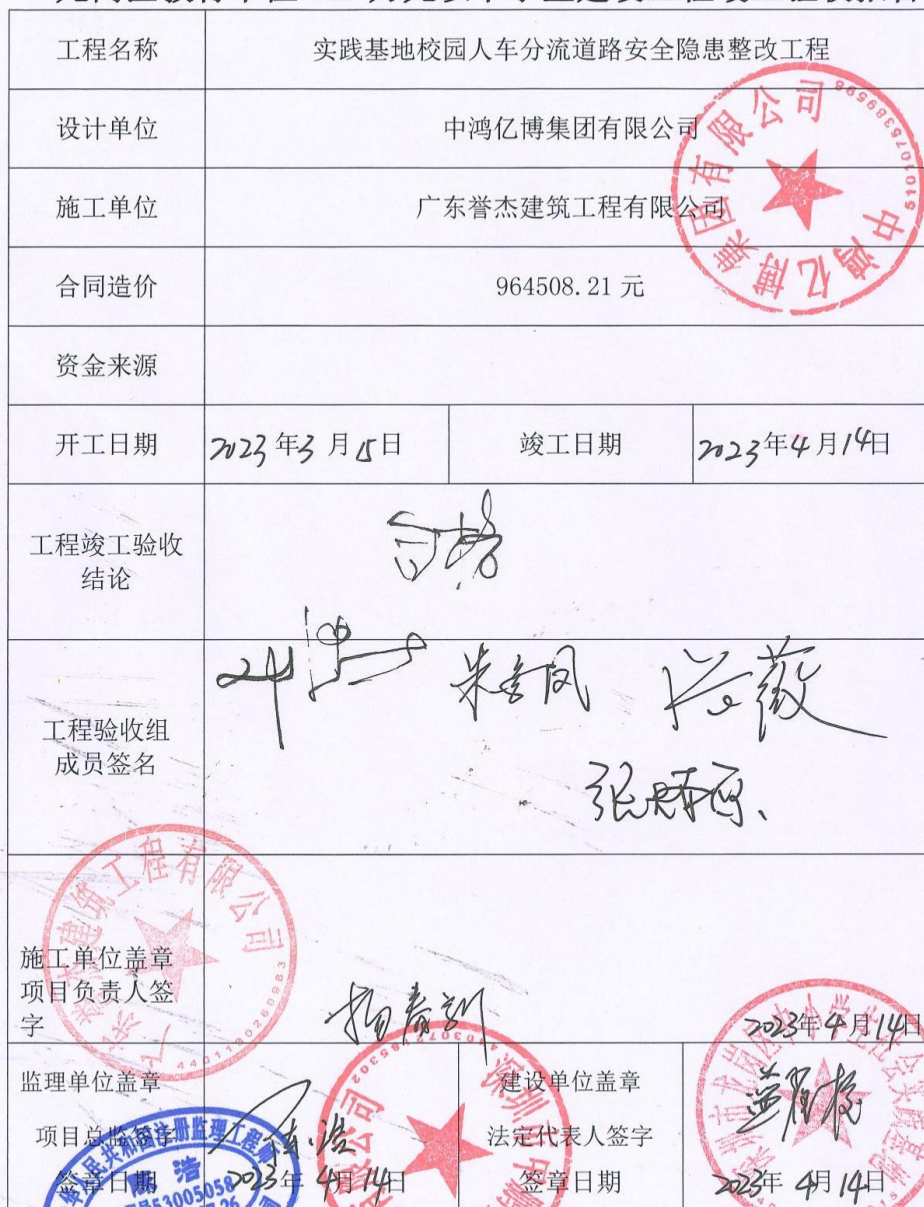 工程名称 实践基地校园人车分流道路安全隐患整改工程
设计单位 中鸿亿博集团有限公司
施工单位 广东誉杰建筑工程有限公司
合同造价 964508.21 元
资金来源
开工日期 2023年3月15日 竣工日期 2023年4月14日
工程竣工验收
结论
合格
工程验收组
成员签名
施工单位盖章
项目负责人签
字
2023年4月14日
监理单位盖章 建设单位盖章
项目总监签字 法定代表人签字
签章日期 2023年4月14日 签章日期 2023年4月14日
中鸿亿博集团有限公司
广东誉杰建筑工程有限公司